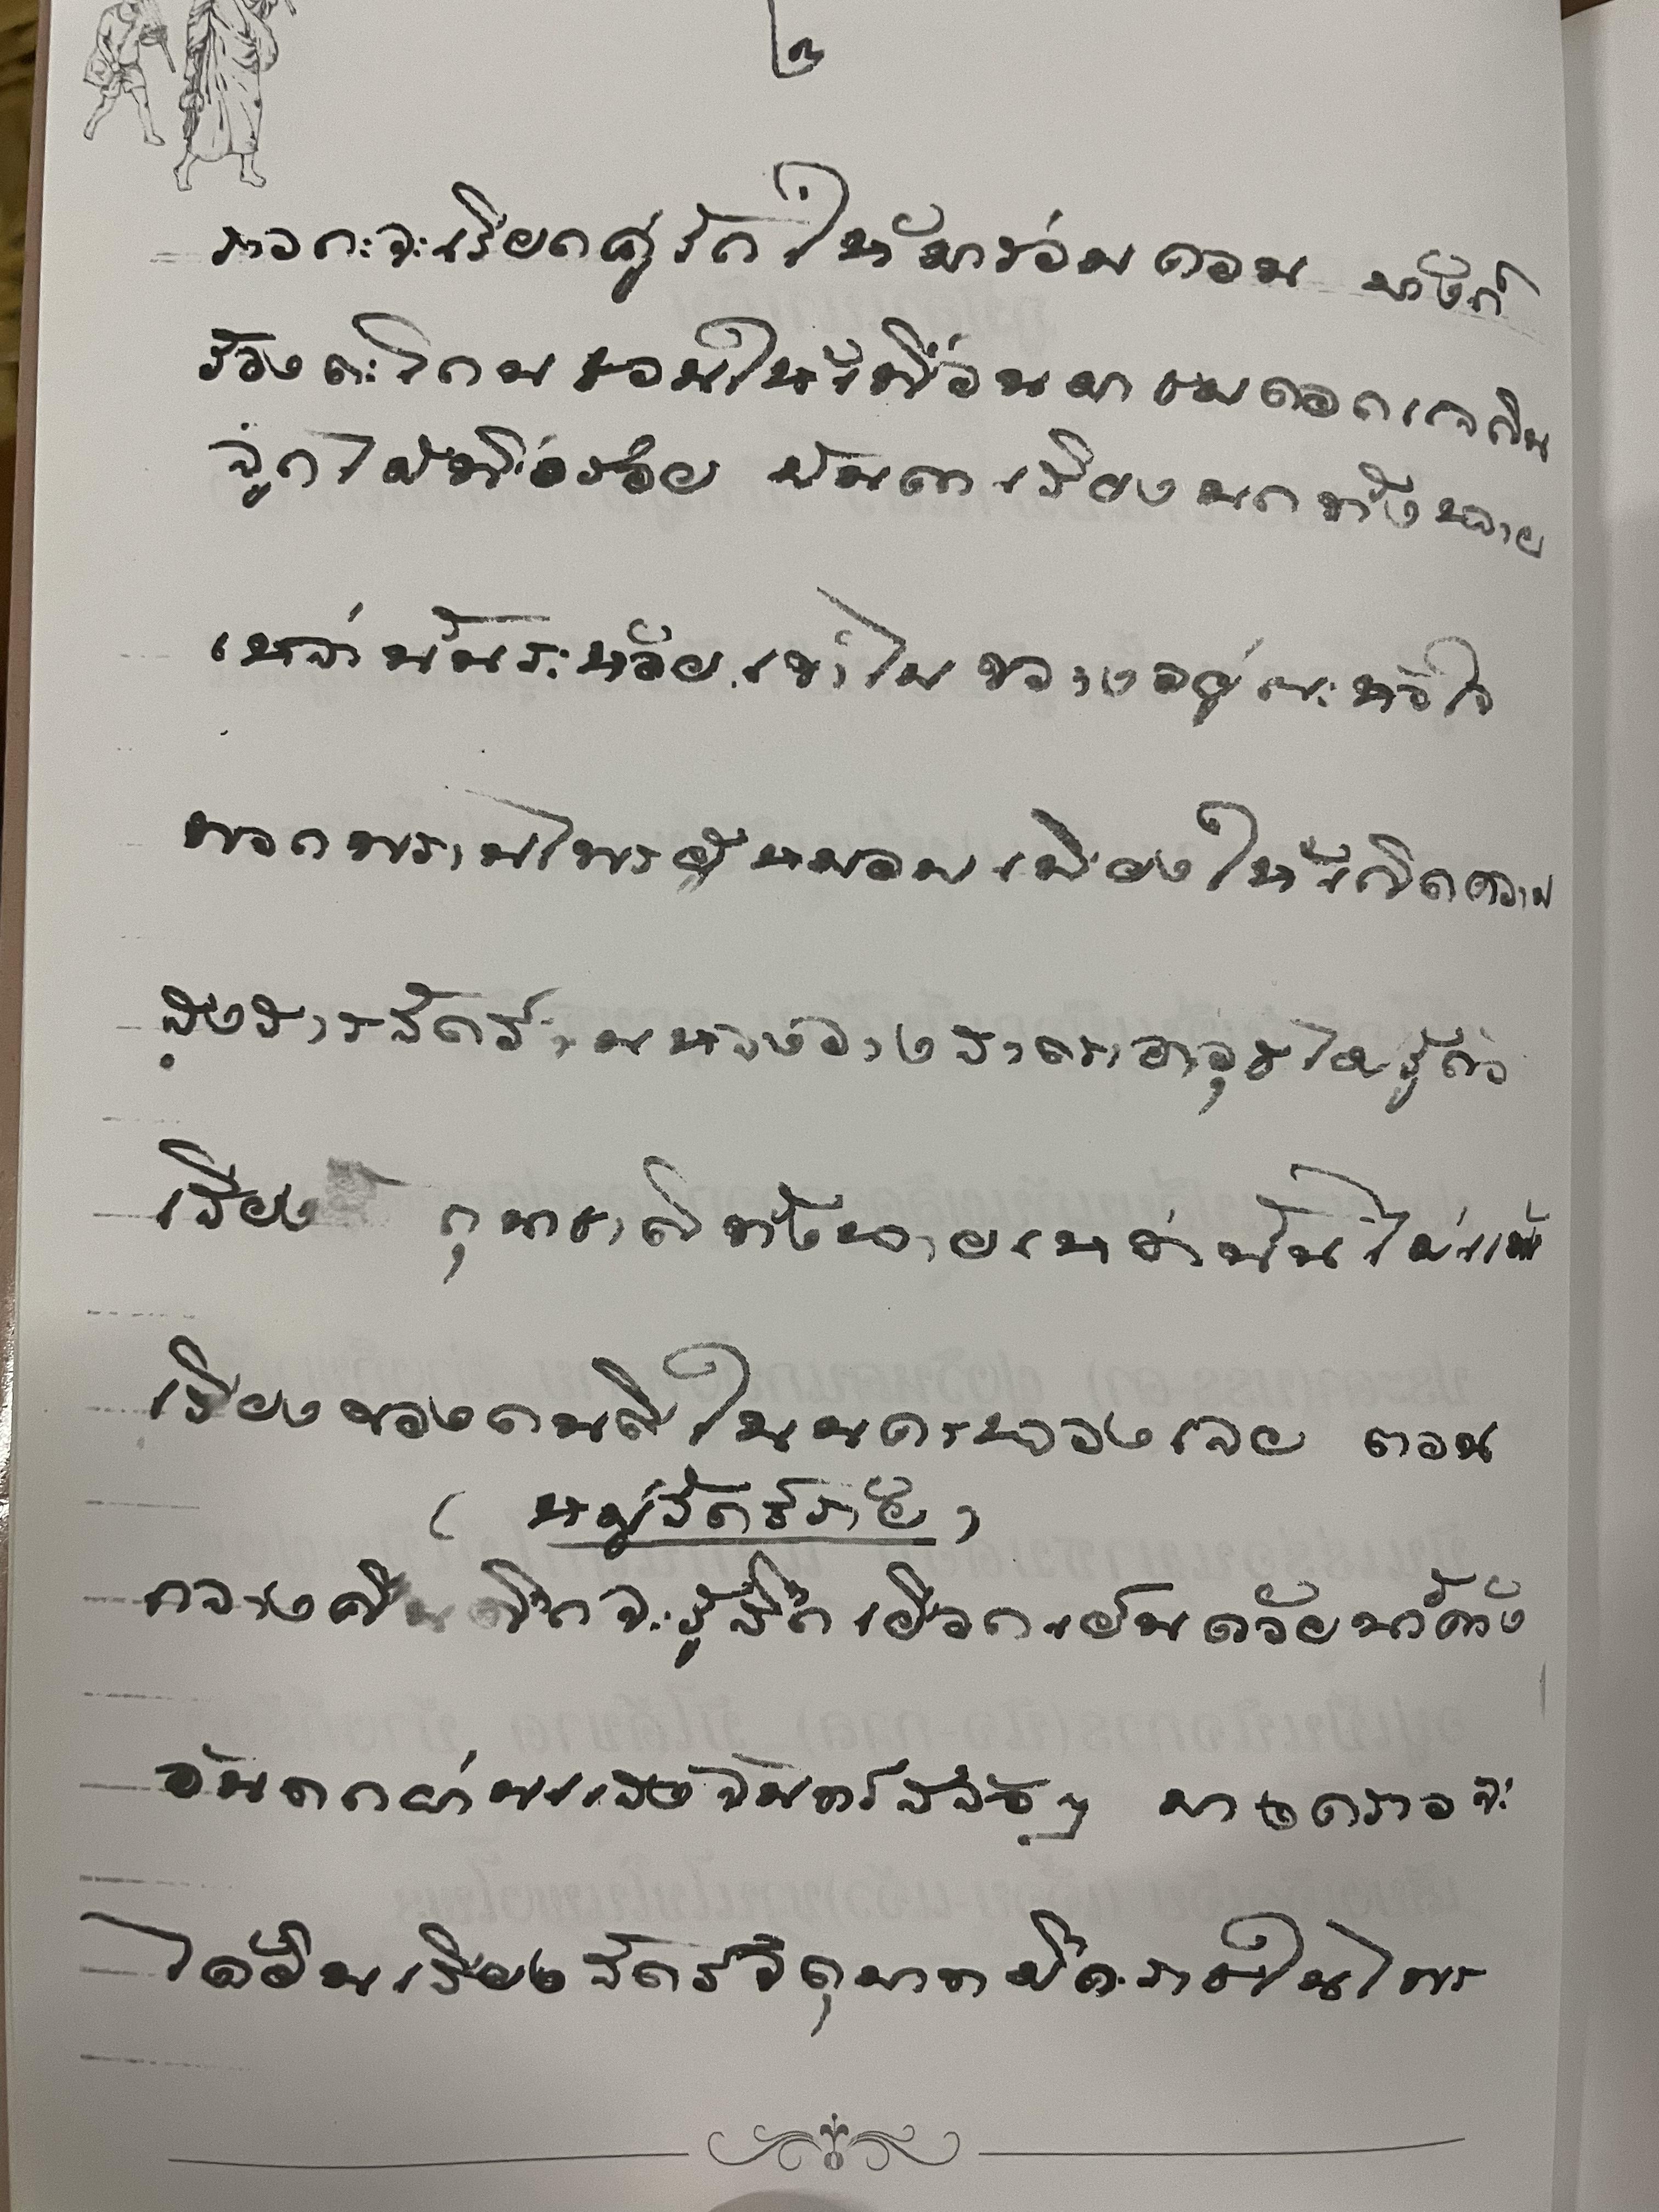 ๒
ราวกะจะเรียกคู่รักให้มาร่อนดอน บ้างก็
ร้องตะโกน ยอมให้เพื่อนมาชมดอกเกสร
ลูกไม้ที่อร่อย นั้นตาเสียงนกทั้งหลาย
เหล่านั้นระห้อย เข้าไปขวางอยู่ณะหัวใจ
พอกพรานไพรผู้หมอบเมียงให้เกิดความ
สงสารสัตร์ บาง วางสาตราอาวุธไม่รู้ตัว
เสียง กุมชาติทั้งหลายเหล่านั้นไม่แพ้
เสียงของดนตรีในนครหลวงเลย ตอน
( หมู่สัตร์ร้าย )
กลางคืน ดึกจะรู้สึกเยือกเย็นด้วยน้ำค้าง
อันตกผ่านแสงจันทร์สลัวๆ บางคราวจะ
ได้ยินเสียงสัตร์จตุบาท ร้ายในไพร